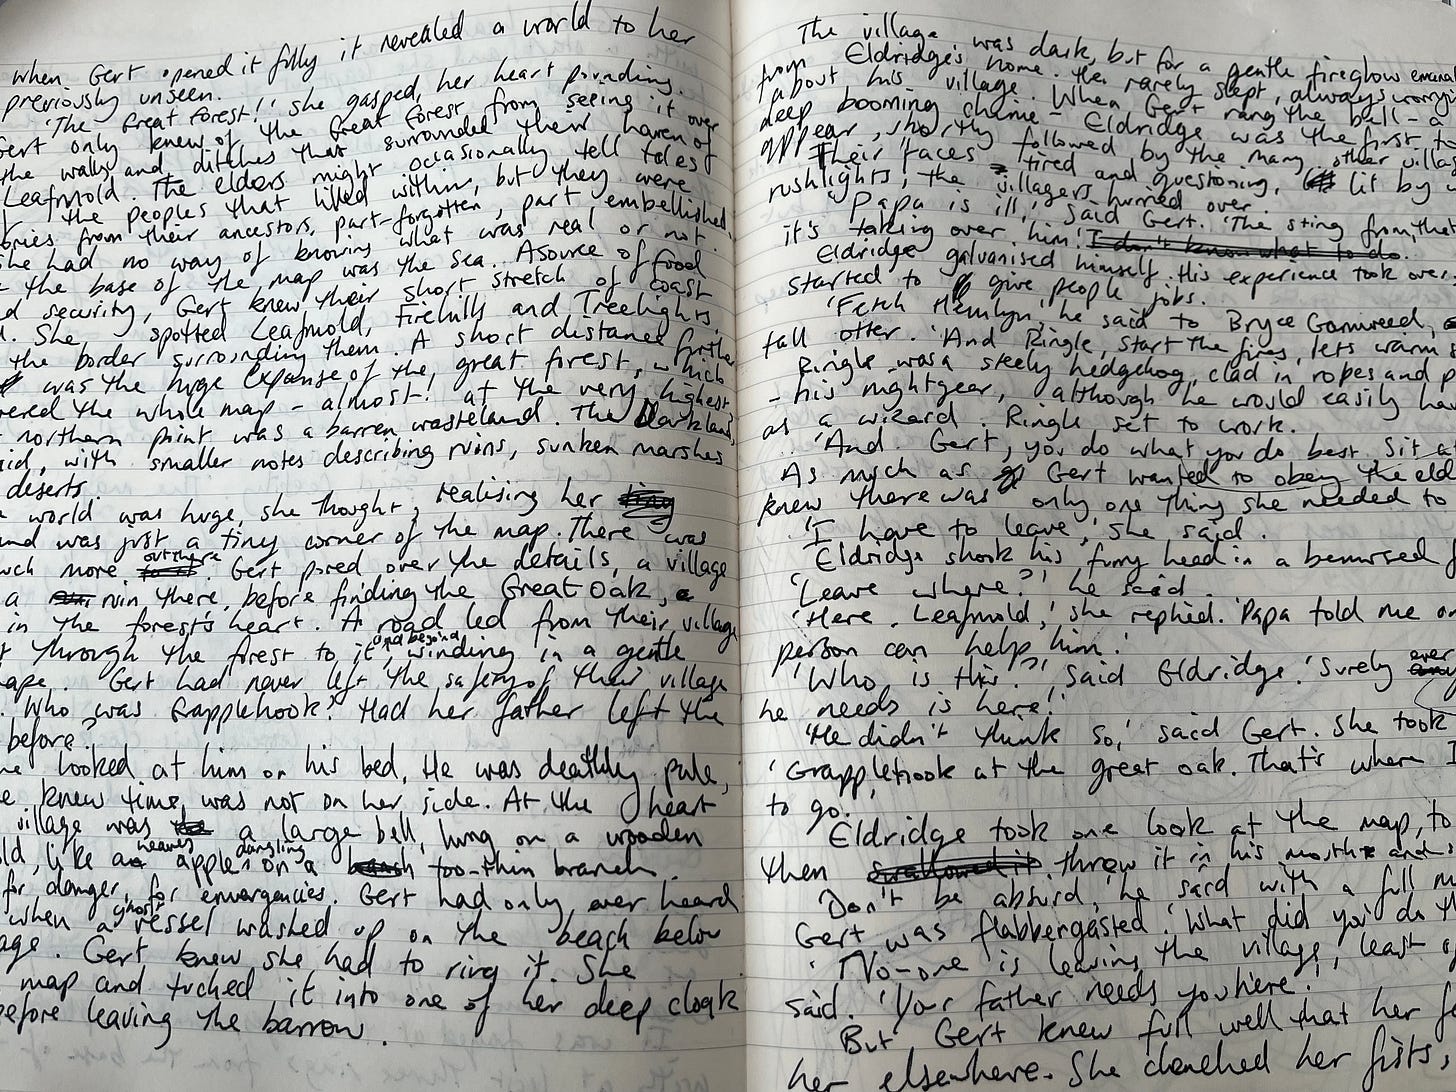 when Gert opened it fully it revealed a world to her
previously unseen.
'The Great Forest!' she gasped, her heart pounding.
Gert only knew of the Great Forest from seeing it over
the walls and ditches that surrounded their haven of
Leafmold. The elders might occasionally tell tales
of the peoples that lived within, but they were
stories from their ancestors, part-forgotten, part embellished,
She had no way of knowing what was real or not.
At the base of the map was the sea. A source of food
and security, Gert knew their short stretch of coast
. She spotted Leafmold, Firehills and Treelights,
the border surrounding them. A short distance further
was the huge expanse of the great forest, which
covered the whole map - almost! at the very highest
northern point was a barren wasteland. The Darklands,
said, with smaller notes describing ruins, sunken marshes
deserts.
world was huge, she thought, realising her
land was just a tiny corner of the map. There was
much more out there. Gert pored over the details, a village
a ruin there, before finding the Great Oak,
in the forest's heart. A road led from their village
through the forest to it, and beyond, winding in a gentle
shape. Gert had never left the safety of their village
. Who was Grapplehook? Had her father left the
before?
She looked at him on his bed, He was deathly pale,
She knew time was not on her side. At the heart
village was a large bell, hung on a wooden
like a heavy apple dangling on a too-thin branch.
for danger, for emergencies. Gert had only ever heard
when a ghost vessel washed up on the beach below
village. Gert knew she had to ring it. She
map and tucked it into one of her deep cloak
before leaving the barrow.
The village was dark, but for a gentle fireglow
from Eldridge's home. He rarely slept, always worrying
about his village. When Gert rang the bell - a
deep booming chime - Eldridge was the first to
appear, shortly followed by the many other
Their faces tired and questioning, lit by
rushlights, the villagers hurried over.
'Papa is ill,' said Gert. 'The sting from, that
it's taking over him.' I don't know what to do.
Eldridge galvanised himself. His experience took over
started to give people jobs.
'Fetch Hemlyn,' he said to Bryce Gornweed,
tall otter. 'And Ringle, start the fires, lets warm
Ringle was a steely hedgehog, clad in ropes and
- his nightgear, although he would easily
as a wizard. Ringle set to work.
'And Gert, you do what you do best. Sit
As much as Gert wanted to obey the
knew there was only one thing she needed to
'I have to leave,' she said.
Eldridge shook his furry head in a bemused
'Leave where?' he said.
'Here, Leafmold,' she replied. 'Papa told me
person can help him.'
'Who is this?' said Eldridge. 'Surely
he needs is here!'
'He didn't think so,' said Gert. She took
'Grapplehook at the great oak. That's where
to go.'
Eldridge took one look at the map,
then swallowed it threw it in his mouth and
'Don't be absurd,' he said with a full
Gert was flabbergasted. 'What did you do
'No-one is leaving the village, least
said. 'Your father needs you here!'
But Gert knew full well that her
her elsewhere. She clenched her fists,